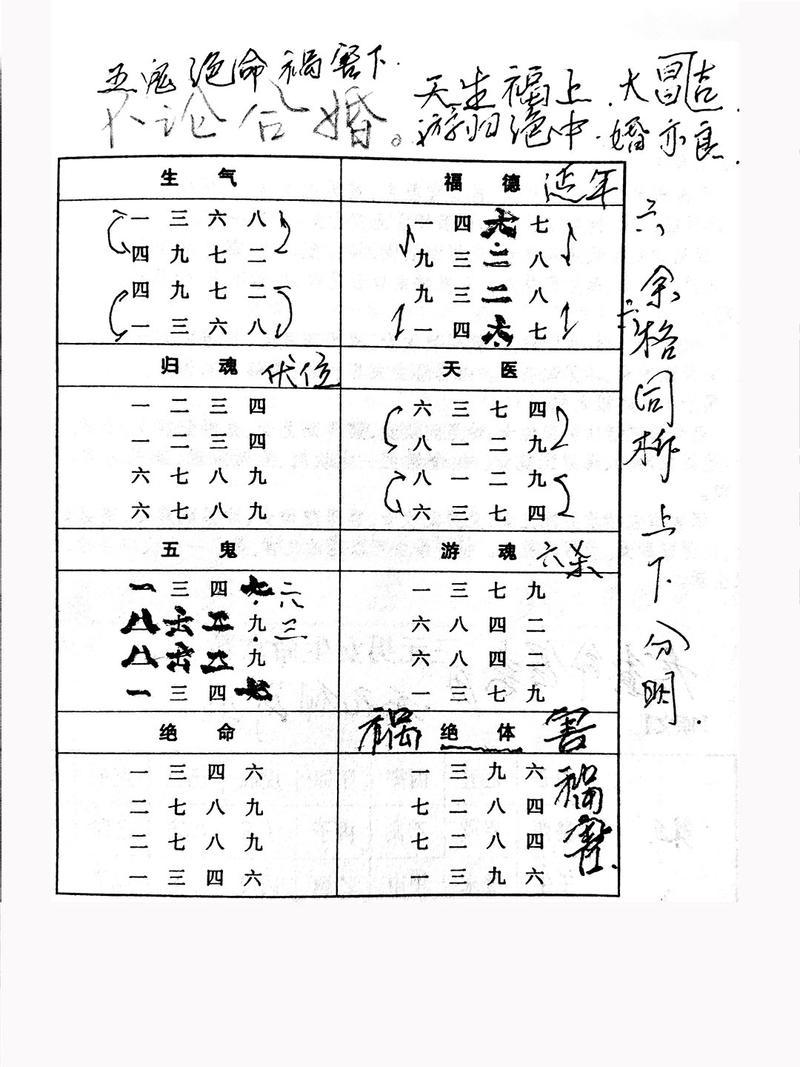 五鬼绝命祸害下.
不论合婚。
天生福上.大昌吉.
游归绝中.婚亦良.
生 气
一 三 六 八
四 九 七 二
四 九 七 二
一 三 六 八
福 德 延年
一 四 六 七
九 三 二 八
九 三 二 八
一 四 六 七
归 魂 伏位
一 二 三 四
一 二 三 四
六 七 八 九
六 七 八 九
天 医
六 三 七 四
八 一 二 九
八 一 二 九
六 三 七 四
五 鬼
一 三 四 七 六
八 六 二 九 三
八 六 二 九
一 三 四 七
游 魂 六杀
一 三 七 九
六 八 四 二
六 八 四 二
一 三 七 九
绝 命
一 三 四 六
二 七 八 九
二 七 八 九
一 三 四 六
祸 绝 体 害
三 九 六
七 二 八 四
七 二 八 四
一 三 九 六
祸害.
六余格同断上下分明.